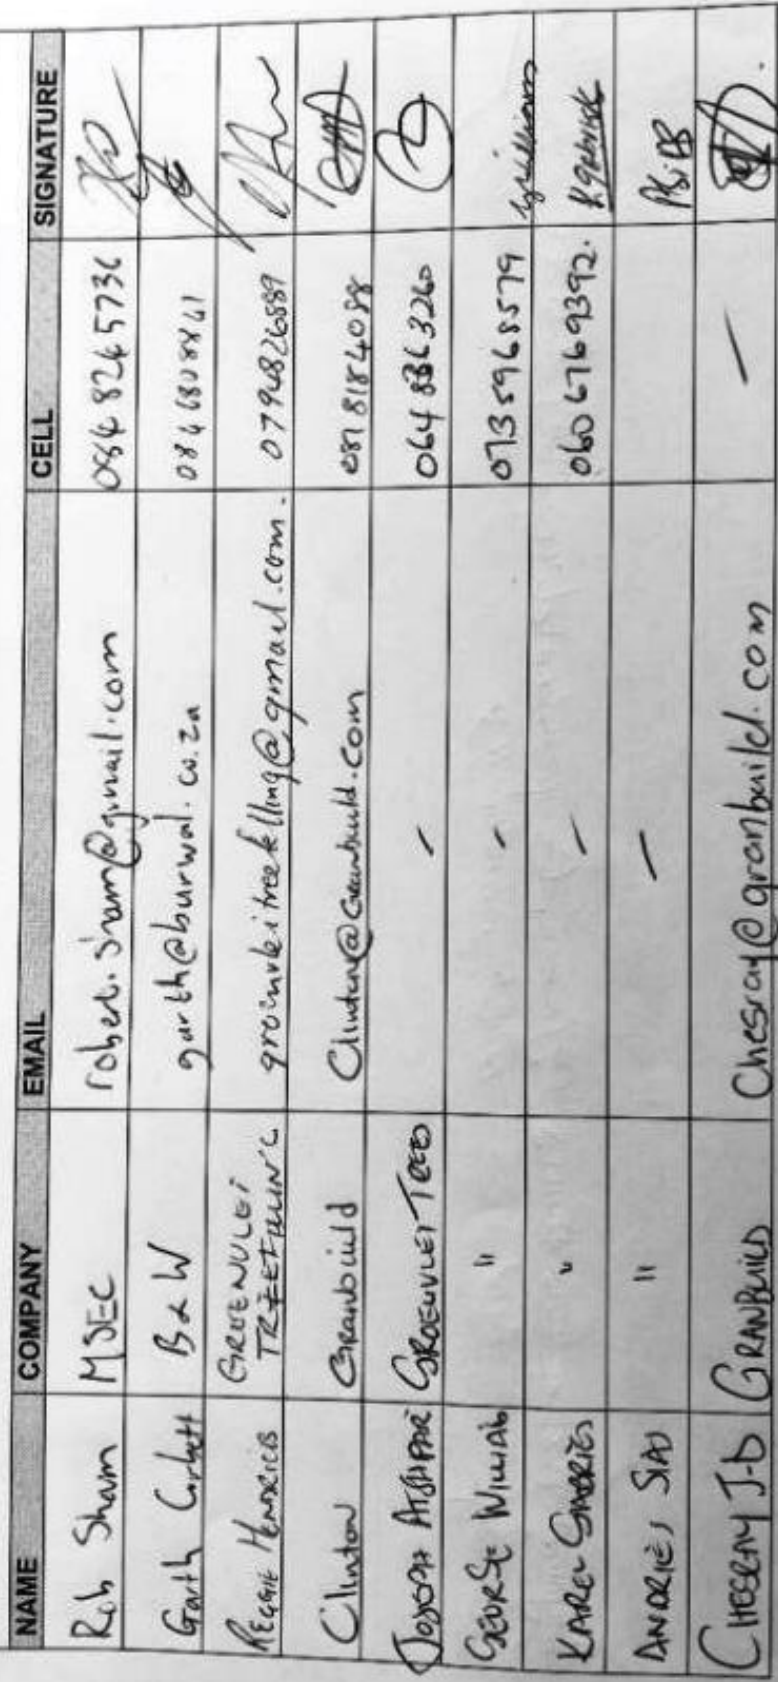 NAME COMPANY EMAIL CELL SIGNATURE
Rob Sham MSEC robert.sham@gmail.com 084 8265736
Garth Corbett B & W garth@burwal.co.za 084 6808861
REGGIE HENDRICKS GROENVLEI TREEFELLING 0794826889
Clinton Granbuild Clinton@Granbuild.com 081 8184088
JOSEPH GROENVLEI TREES - 064 836 3260
GEORGE WILLIAMS " - 0735968579 williams
KAREL " - 060 6769392.
ANDRIES " -
CHESRAY J-D GRANBUILD Chesray@granbuild.com -